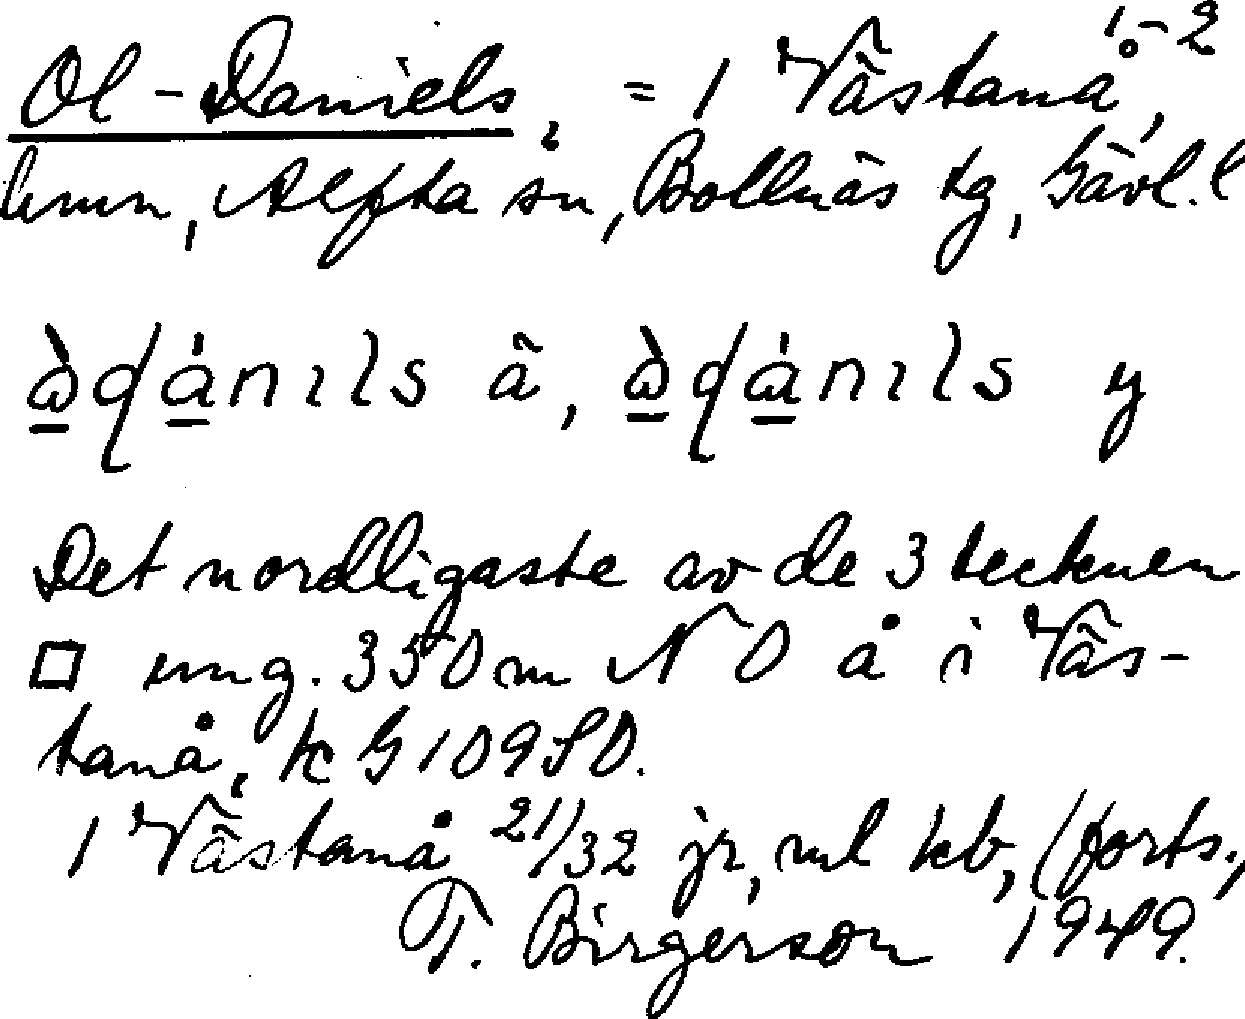 1-2
Ol-Daniels, = 1 Västanå,
hmn, Alfta sn, Bollnäs tg, Gävl. l
Det nordligaste av de 3 tecknen
□ ung. 350 m NO å i Väs-
tanå, k G 109 SO.
1 Västanå 21/32 jr, ml kb, (forts.,
T. Birgerson 1949.